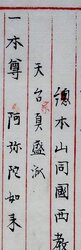 總本山同國西教
天台真盛派
一本尊　阿弥陀如来